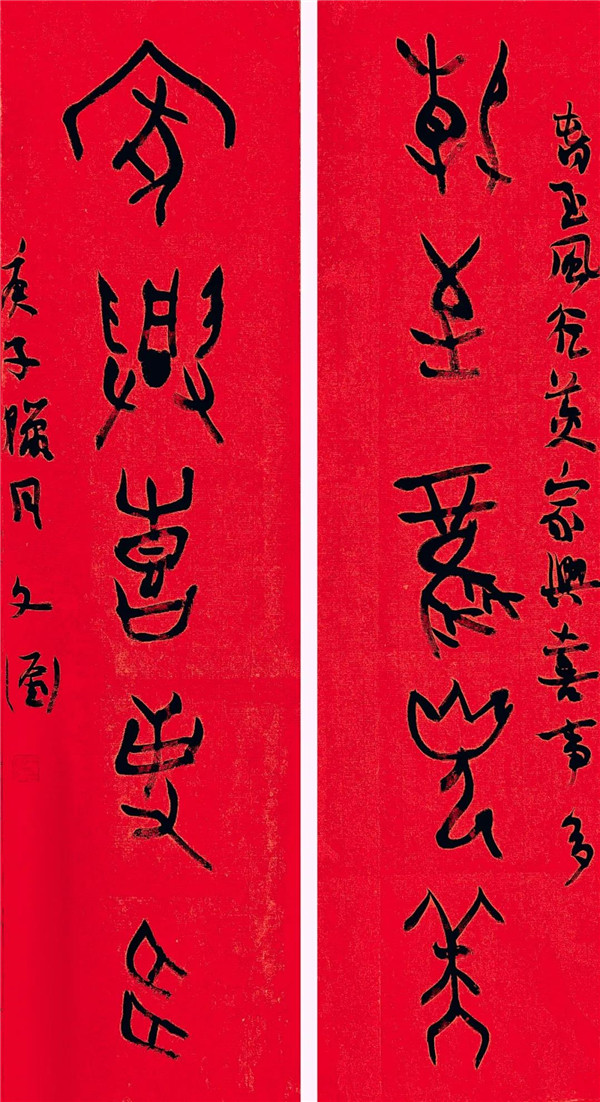 春至風光美家興喜事多
春至風光美
家興喜事多
庚子臘月 文